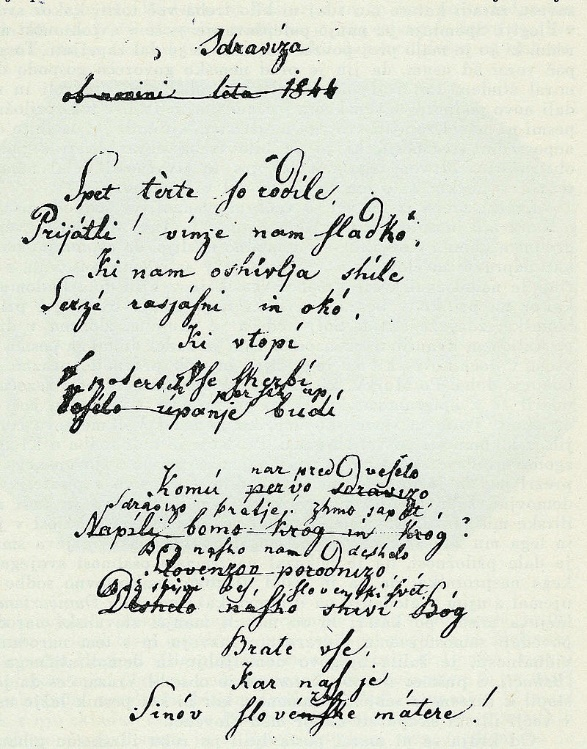 Sdravíza
ob noveni leta 1844
Spet tèrte so rodile,
Prijátli! vínze nam sladkó,
Ki nam oshívlja shíle
Serzé rasjásni in okó,
Ki vtopí
Vse skerbí
V potertih persih up
Vesélo upanje budí
nar pred veselo
Komú pervo sdravizo
Sdravizo bratje! zhmo sapét',
Napíli bomo krog in krog?
Bog nasho nam deshelo
Slovenzov porodnizo
Bog shivi ves slovenski svét,
Deshélo nasho shiví Bóg
Brate vse,
Kar nas je
Sinóv slovénske mátere!